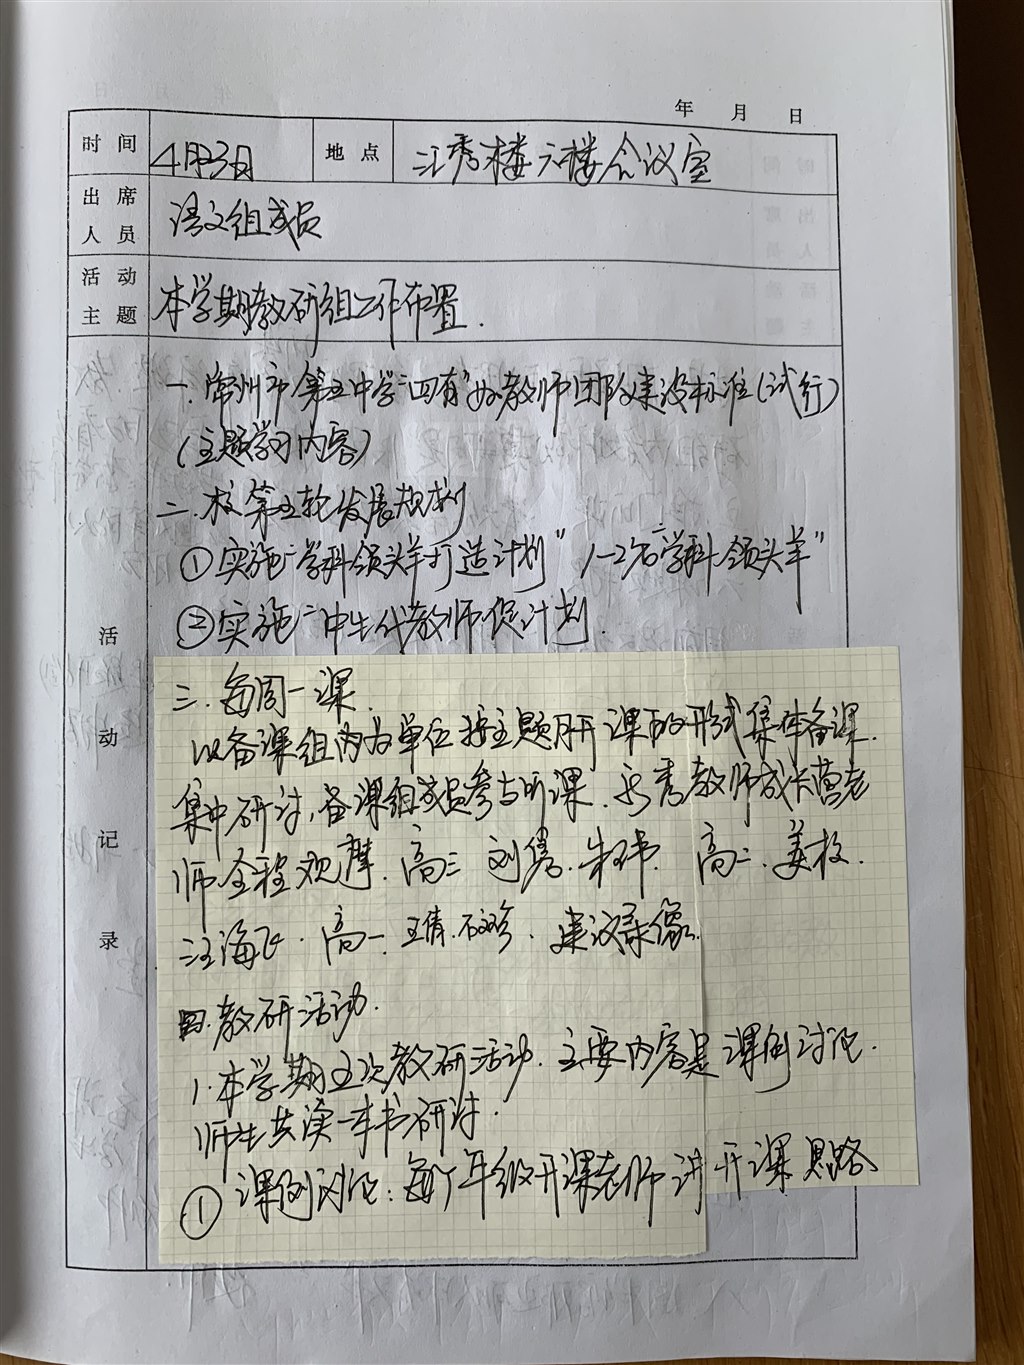 年 月 日
时间 4月3日 地点 江秀楼六楼会议室
出席人员 语文组成员
活动主题 本学期教研组工作布置.
活动记录
一. 常州市第五中学“四有”好教师团队建设标准(试行)
(主题学习内容)
二. 校第五轮发展规划
①实施“学科领头羊打造计划” 1-2名“学科领头羊”
②实施“中生代教师 促计划.
三. 每周一课.
以备课组内为单位按主题 开课的形式集体备课.
集中研讨, 备课组成员参与听课. 优秀教师成长营老
师全程观摩. 高三 刘隽. 朱玮. 高二. 姜枚.
汪海飞. 高一. 王倩. 石文珍. 建议录像.
四. 教研活动.
1. 本学期五次教研活动. 主要内容是课例讨论.
师生共读一本书研讨.
① 课例讨论: 每个年级开课老师讲开课思路